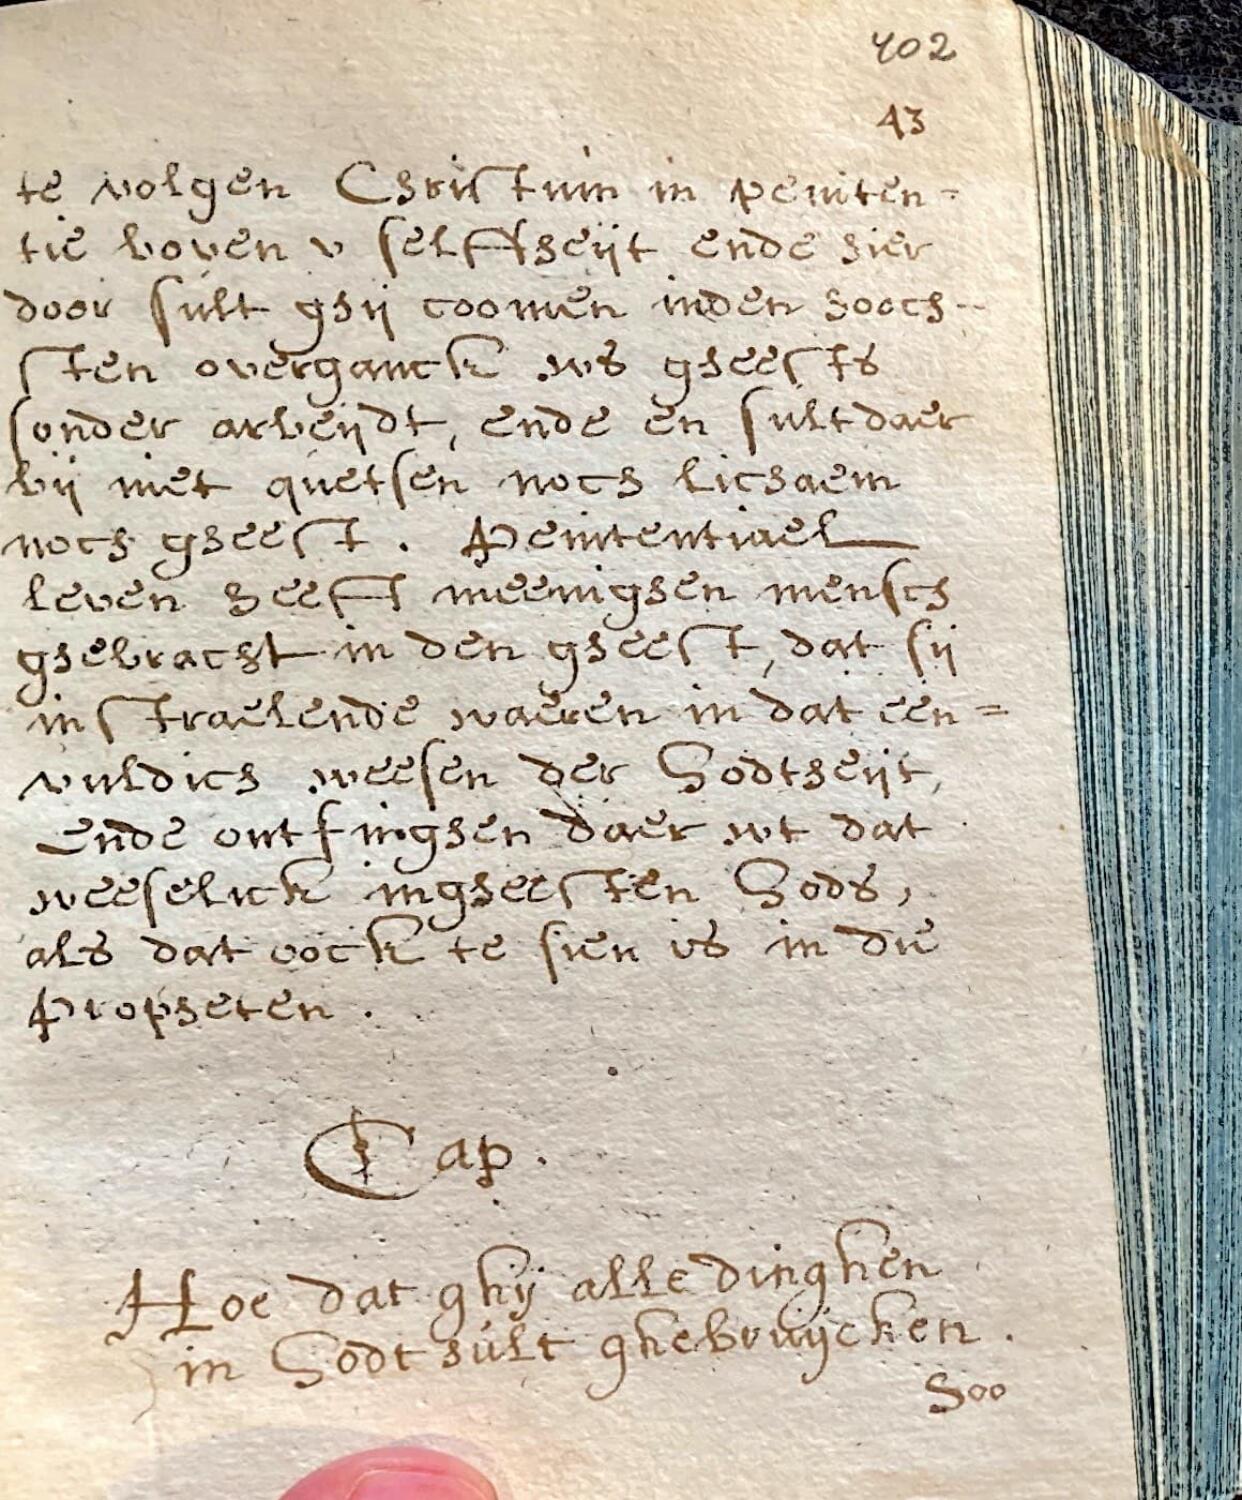 402
43
te volgen Christum in peniten=
tie boven v selfsheijt ende hier
door sult ghij coomen inden hooch-
sten overganck ws gheests
sonder arbeijdt, ende en sult daer
bij niet quetsen noch lichaem
noch gheest. Penitentiael
leven heeft meenighen mensch
ghebracht in den gheest, dat sij
instraelende waeren in dat een=
vuldich weesen der Godtheijt,
Ende ontfinghen daer wt dat
weeselick ingheesten Gods,
als dat oock te sien is in die
Propheten.
Cap.
Hoe dat ghij alle dinghen
in Godt sult ghebruijcken.
Soo